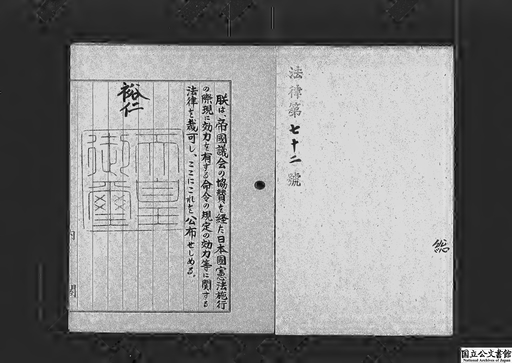 法律第七十二號
朕は、帝國議会の協贊を経た日本國憲法施行
の際現に効力を有する命令の規定の効力等に関する
法律を裁可し、ここにこれを公布せしめる。
裕仁
天皇
御璽
国立公文書館
National Archives of Japan